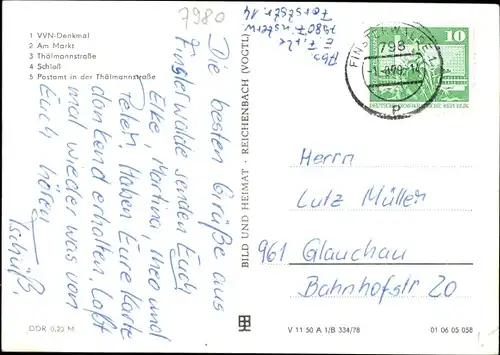 7980
1 VVN-Denkmal
2 Am Markt
3 Thälmannstraße
4 Schloß
5 Postamt in der Thälmannstraße
Die besten Grüße aus
Finsterwalde senden Euch
Elke, Martina, Theo und
Peter. Haben Eure Karte
dankend erhalten. Laßt
mal wieder was von
Euch hören.
Tschüß.
DDR 0,23 M
BILD UND HEIMAT · REICHENBACH (VOGTL)
Abs.
7980 Finsterw
Forststr. 14
FINSTERWALDE 1
798
10
DEUTSCHE DEMOKRATISCHE REPUBLIK
Herrn
Lutz Müller
961 Glauchau
Bahnhofstr 20
V 11 50 A 1/B 334/78
01 06 05 058